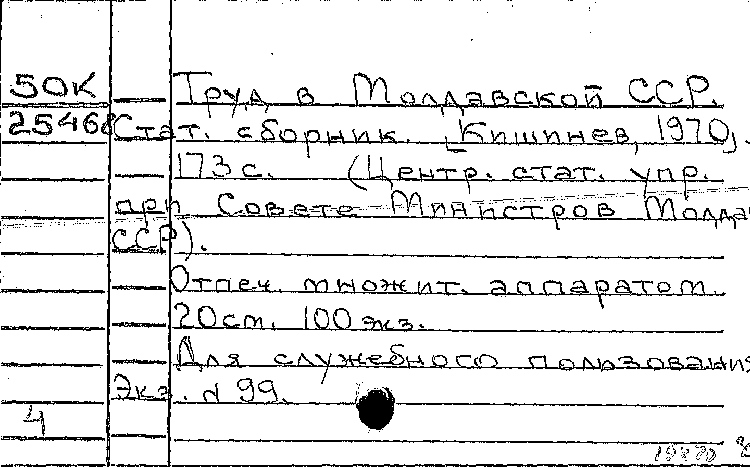 50К Труд в Молдавской ССР.
25468 Стат. сборник. [Кишинев, 1970].
173 с. (Центр. стат. упр.
при Совете Министров Молдав
ССР).
Отпеч. множит. аппаратом.
20 см. 100 экз.
Для служебного пользования
Экз. № 99.
4